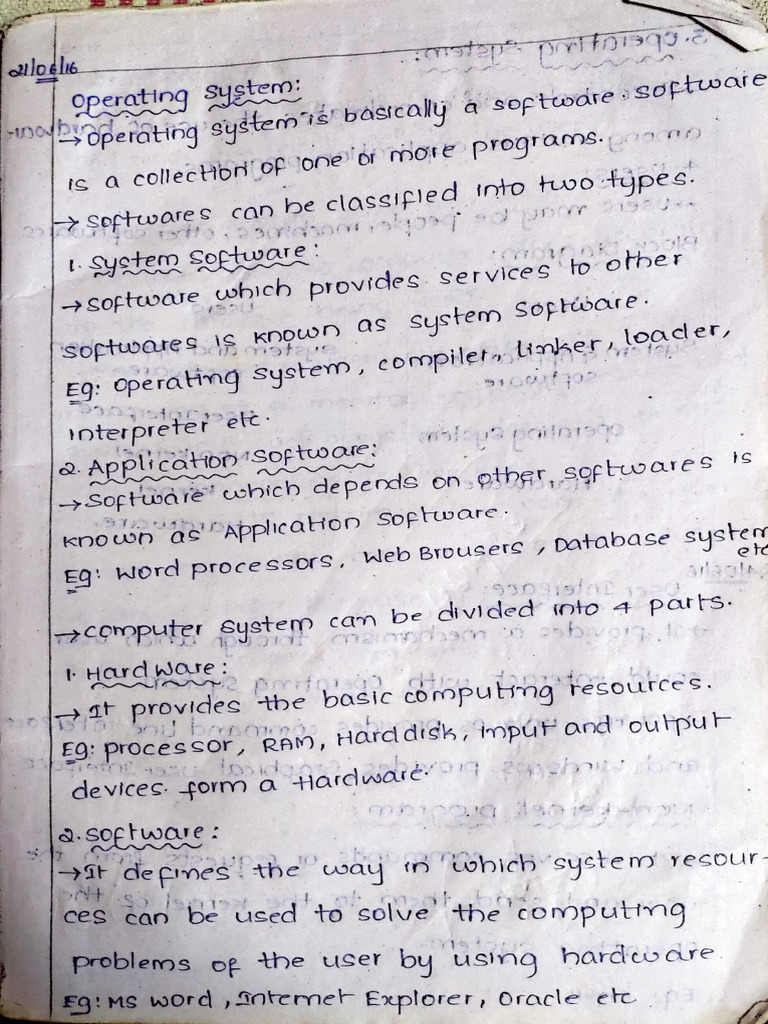 21/06/16
Operating System:
→ Operating system is basically a software. software
is a collection of one or more programs.
→ Softwares can be classified into two types.
1. System Software:
→ Software which provides services to other
softwares is known as system software.
Eg: Operating System, compiler, linker, loader,
Interpreter etc.
2. Application Software:
→ Software which depends on other softwares is
known as Application Software.
Eg: Word processors, Web Brousers, Database system
etc
→ Computer system can be divided into 4 parts.
1. Hardware:
→ It provides the basic computing resources.
Eg: processor, RAM, Harddisk, imput and output
devices form a Hardware.
2. Software:
→ It defines the way in which system resour-
ces can be used to solve the computing
problems of the user by using hardware.
Eg: MS Word, Internet Explorer, Oracle etc